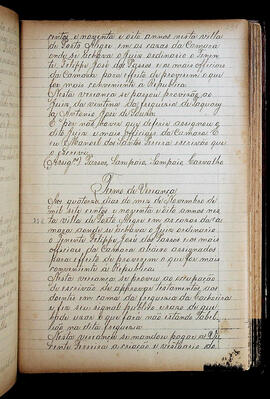 centos e noventa e oito annos nesta villa
de Porto Alegre em as cazas da Camara
onde se achava o Juiz ordinario o Tenen
te Felippe José dos Passos e os mais officiaes
da Camara para effeito de proverem o que
for mais conveniente a Republica.
Nesta vereança se passou provisão ao
Juiz da vintena da freguesia de
Antonio José de
E por não haver que deferir assignou o
dito Juiz e mais officiaes da Camara E
eu Manoel dos Santos Pereira escrivão que
o escrevi.
(Assignos) Passos, Sampaio, Sampaio, Carvalho
Termo de Vereança
Aos quatorze dias do mez de Novembro de
mil sete centos e noventa e oito annos nes
ta villa de Porto Alegre em as cazas da Ca
mara aonde se achava o Juiz ordinario
o Tenente Felippe José dos Passos e os mais
officiaes da Camara abaixo assignados
para effeito de proverem o que for mais
conveniente a Republica.
Nesta vereança se proveo a occupação
de escrivão de approvar testamentos aos
doentes em cama da freguesia da Cachoeira
e fez seu signal publico razo de que
hade uzar o que fará não estando Tabel
lião na dita freguesia
Nesta vereança se mandou pagar a
Pereira a criação e vestiario do